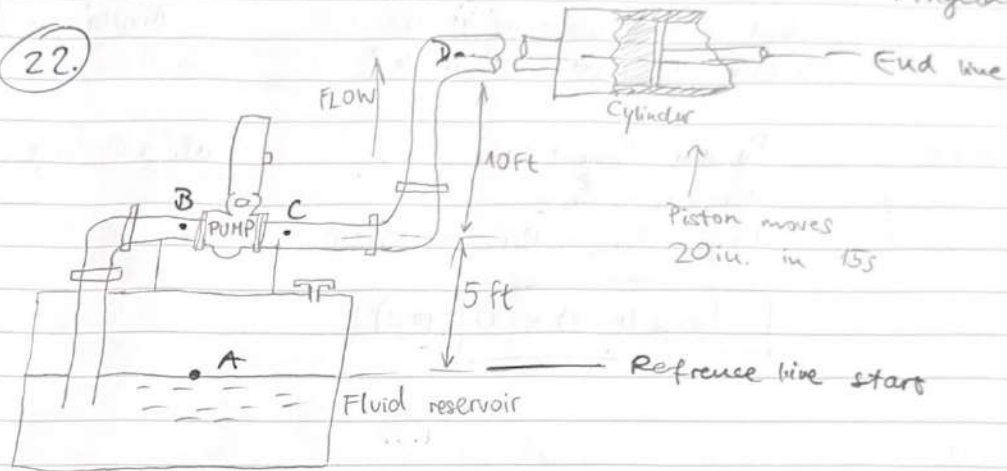 22.
FLOW
D
End line
Cylinder
10Ft
B
PUMP
C
Piston moves
20in. in 15s
5 ft
A
Refrence line start
Fluid reservoir